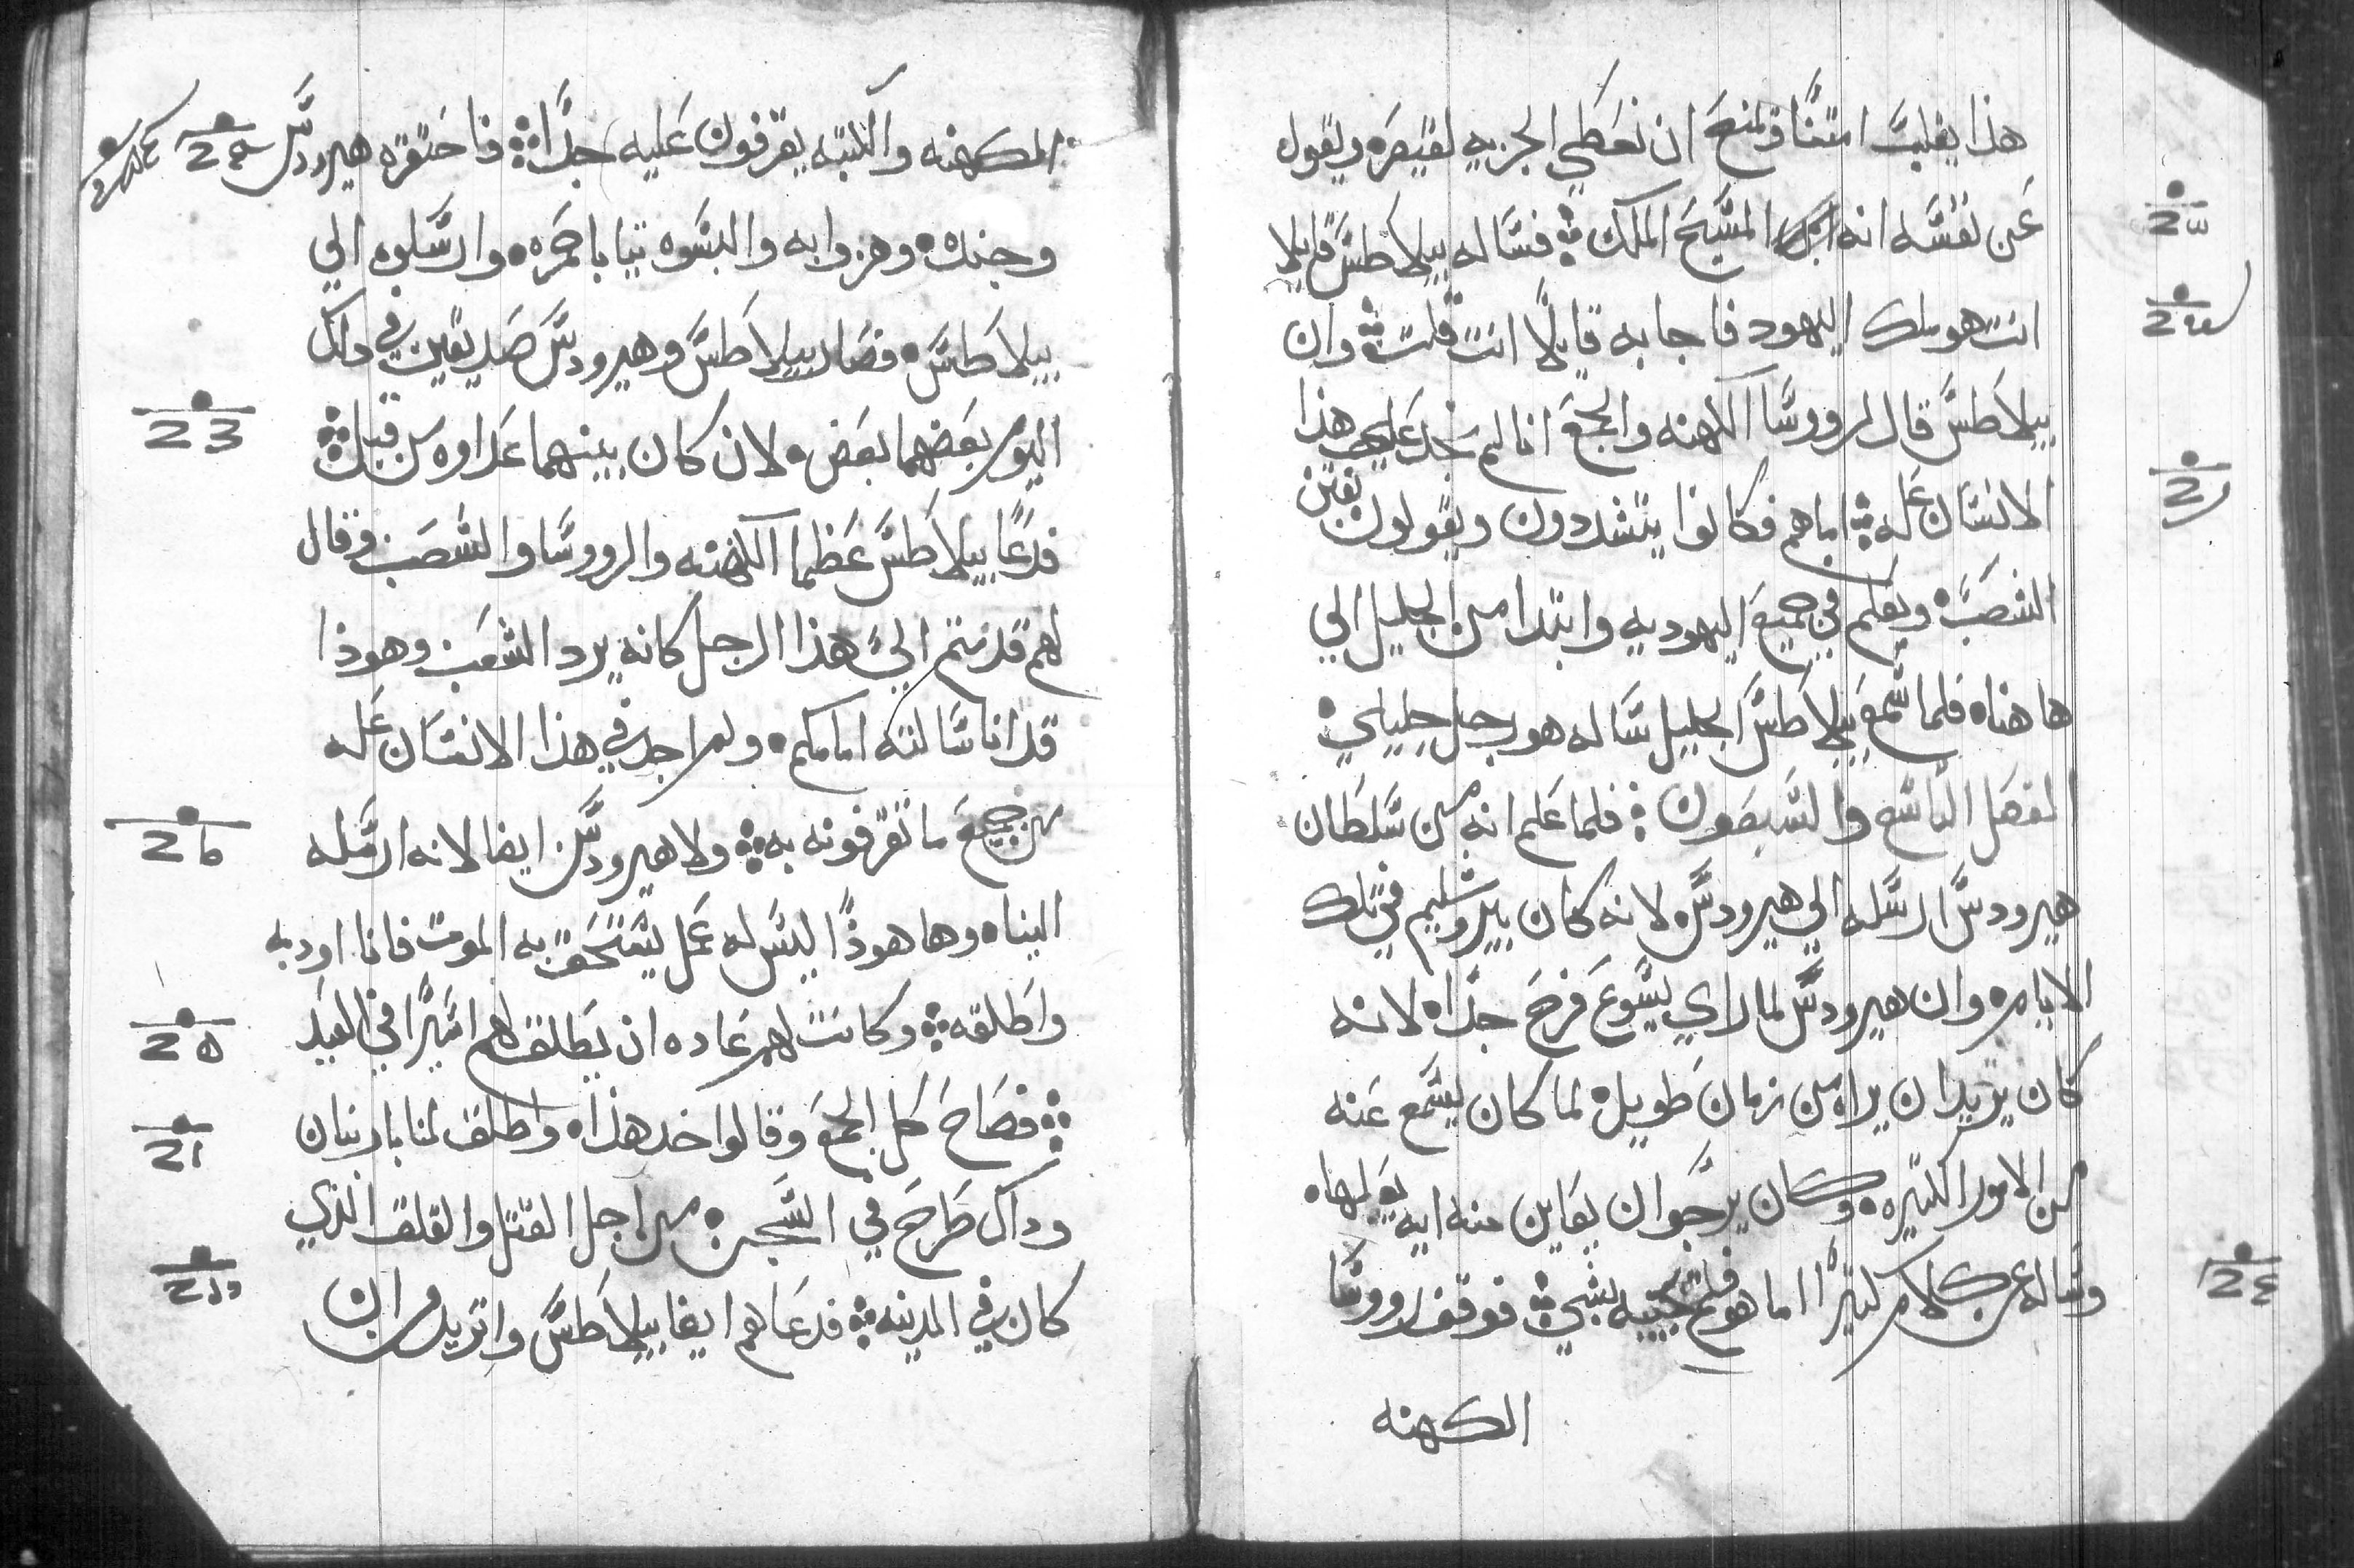 هذا يقلب امتنا ويمنع ان نعطي الجزيه لقيصر ويقول
عن نفسه انه المسيح الملك فساله بيلاطس قايلا
انت هو ملك اليهود فاجابه قايلا انت قلت وان
بيلاطس قال لرووسا الكهنه والجمع انا لم نجد علي هذا
الانسان عله اما هم فكانوا يتشددون ويقولون يفتن
الشعب ويعلم في جميع اليهوديه وابتدا من الجليل الي
ها هنا فلما سمع بيلاطس الجليل ساله هو رجل جليلي
الفصل التاسع والسبعون فلما علم انه من سلطان
هيرودس ارسله الي هيرودس لانه كان بيروشليم في تلك
الايام وان هيرودس لما راي يسوع فرح جدا لانه
كان يريد ان يراه من زمان طويل لما كان يسمع عنه
من الامور الكتيره وكان يرجوا ان يعاين منه ايه يعملها
وساله عن كلام كتيرا اما هو فلم يجيبه بشي فوقف رووسا
الكهنه
الكهنه والكتبه يقرفون عليه جدا فاحتقره هيرودس
وجنده وهزوا به والبسوه تيابا حمره وارسلوه الي
بيلاطس فصار بيلاطس وهيرودس صديقين في داك
اليوم بعضهما بعض لان كان بينهما عداوه من قبل
فدعا بيلاطس عظما الكهنه والرووسا والشعب وقال
لهم قدمتم الي هذا الرجل كانه يرد الشعب وهوذا
قد انا سالته امامكم ولم اجد في هذا الانسان عله
من جميع ما تقرفونه به ولا هيرودس ايضا لانه ارسله
الينا وها هوذا ليس له عمل يستحق به الموت فانا اودبه
واطلقه وكانت لهم عاده ان يطلق لهم اسيرا في العيد
فصاح كل الجمع وقالوا خد هذا واطلق لنا باربنان
وداك طرح في السجن من اجل القتل والقلق الذي
كان في المدينه فدعاهم ايضا بيلاطس واتريد مران